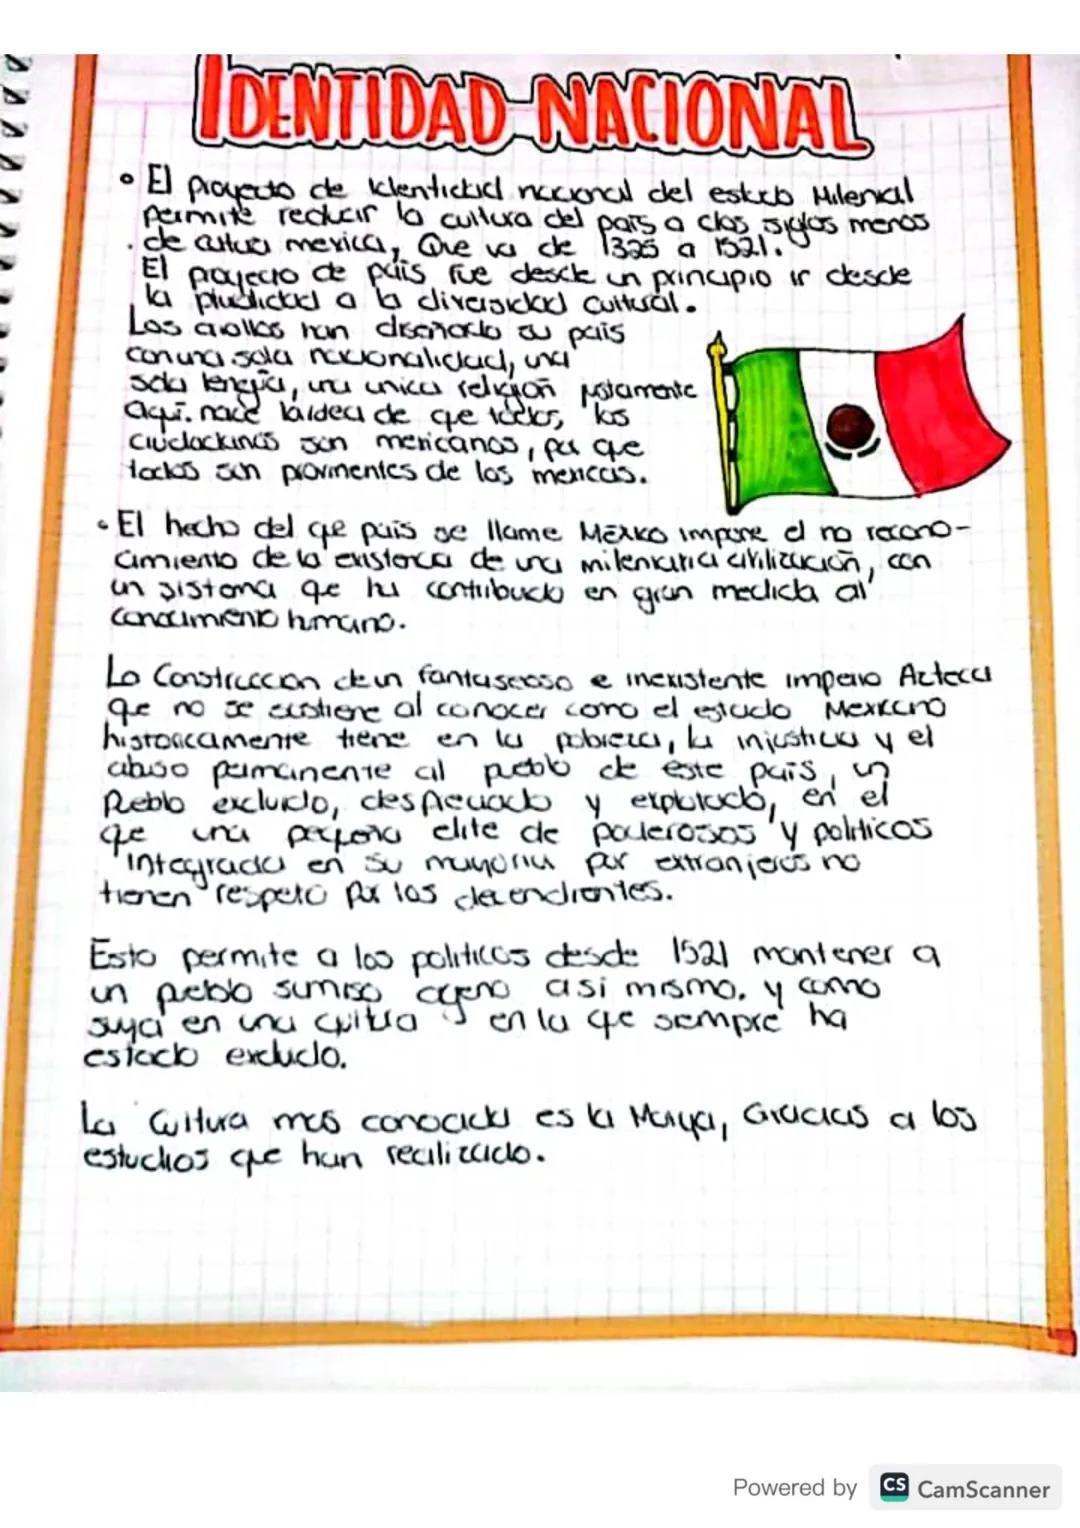 IDENTIDAD NACIONAL
• El proyecto de Identidad nacional del estado Milenial
permite reducir la cultura del país a dos siglos menos
de cultura mexica, Que va de 1325 a 1521.
El proyecto de país fue desde un principio ir desde
la pluralidad a la diversidad cultural.
Los criollos han diseñado su país
con una sola nacionalidad, una
sola lengua, una unica religion justamente
aquí. nace la idea de que todos, los
ciudadanos son mexicanos, por que
todos son provinentes de los mexicas.
• El hecho del que pais se llame México impone el no recono-
cimiento de la existencia de una milenaria civilización, con
un sistema que ha contribuido en gran medida al
conocimiento humano.
La Construccion de un fantasioso e inexistente imperio Azteca
que no se sostiene al conocer como el estado Mexicano
historicamente tiene en la pobreza, la injusticia y el
abuso permanente al pueblo de este país, un
Pueblo excluido, despreciado y explotado, en el
que una pequeña elite de poderosos y politicos
integrada en su mayoria por extranjeros no
tienen respeto por los decendientes.
Esto permite a los politicos desde 1521 mantener a
un pueblo sumiso ageno asi mismo, y como
suya en una cultura en la que siempre ha
estado excluido.
La Cultura mas conocida es la Maya, Gracias a los
estudios que han realizado.
Powered by CS CamScanner